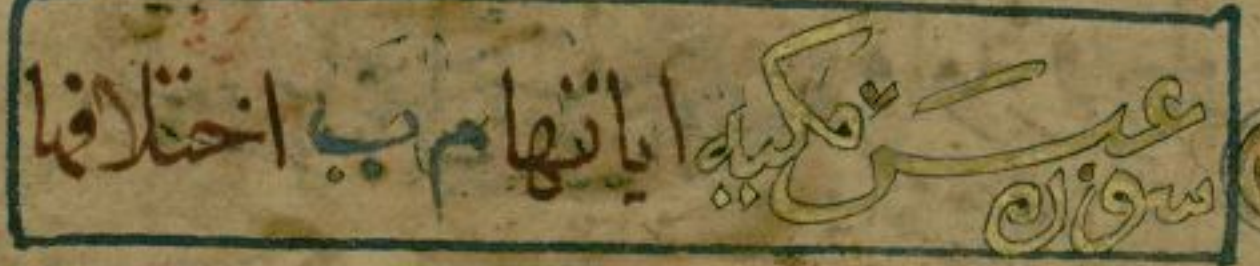 سورة عبس مكية اياتها م ب اختلافها